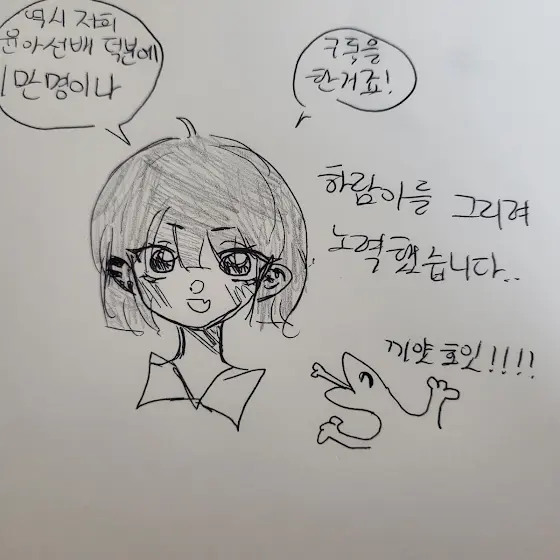 역시 저희
윤아선배 덕분에
1만명이나
구독을
한거죠!
하람이를 그리려
노력했습니다..
끼얏호잇!!!!